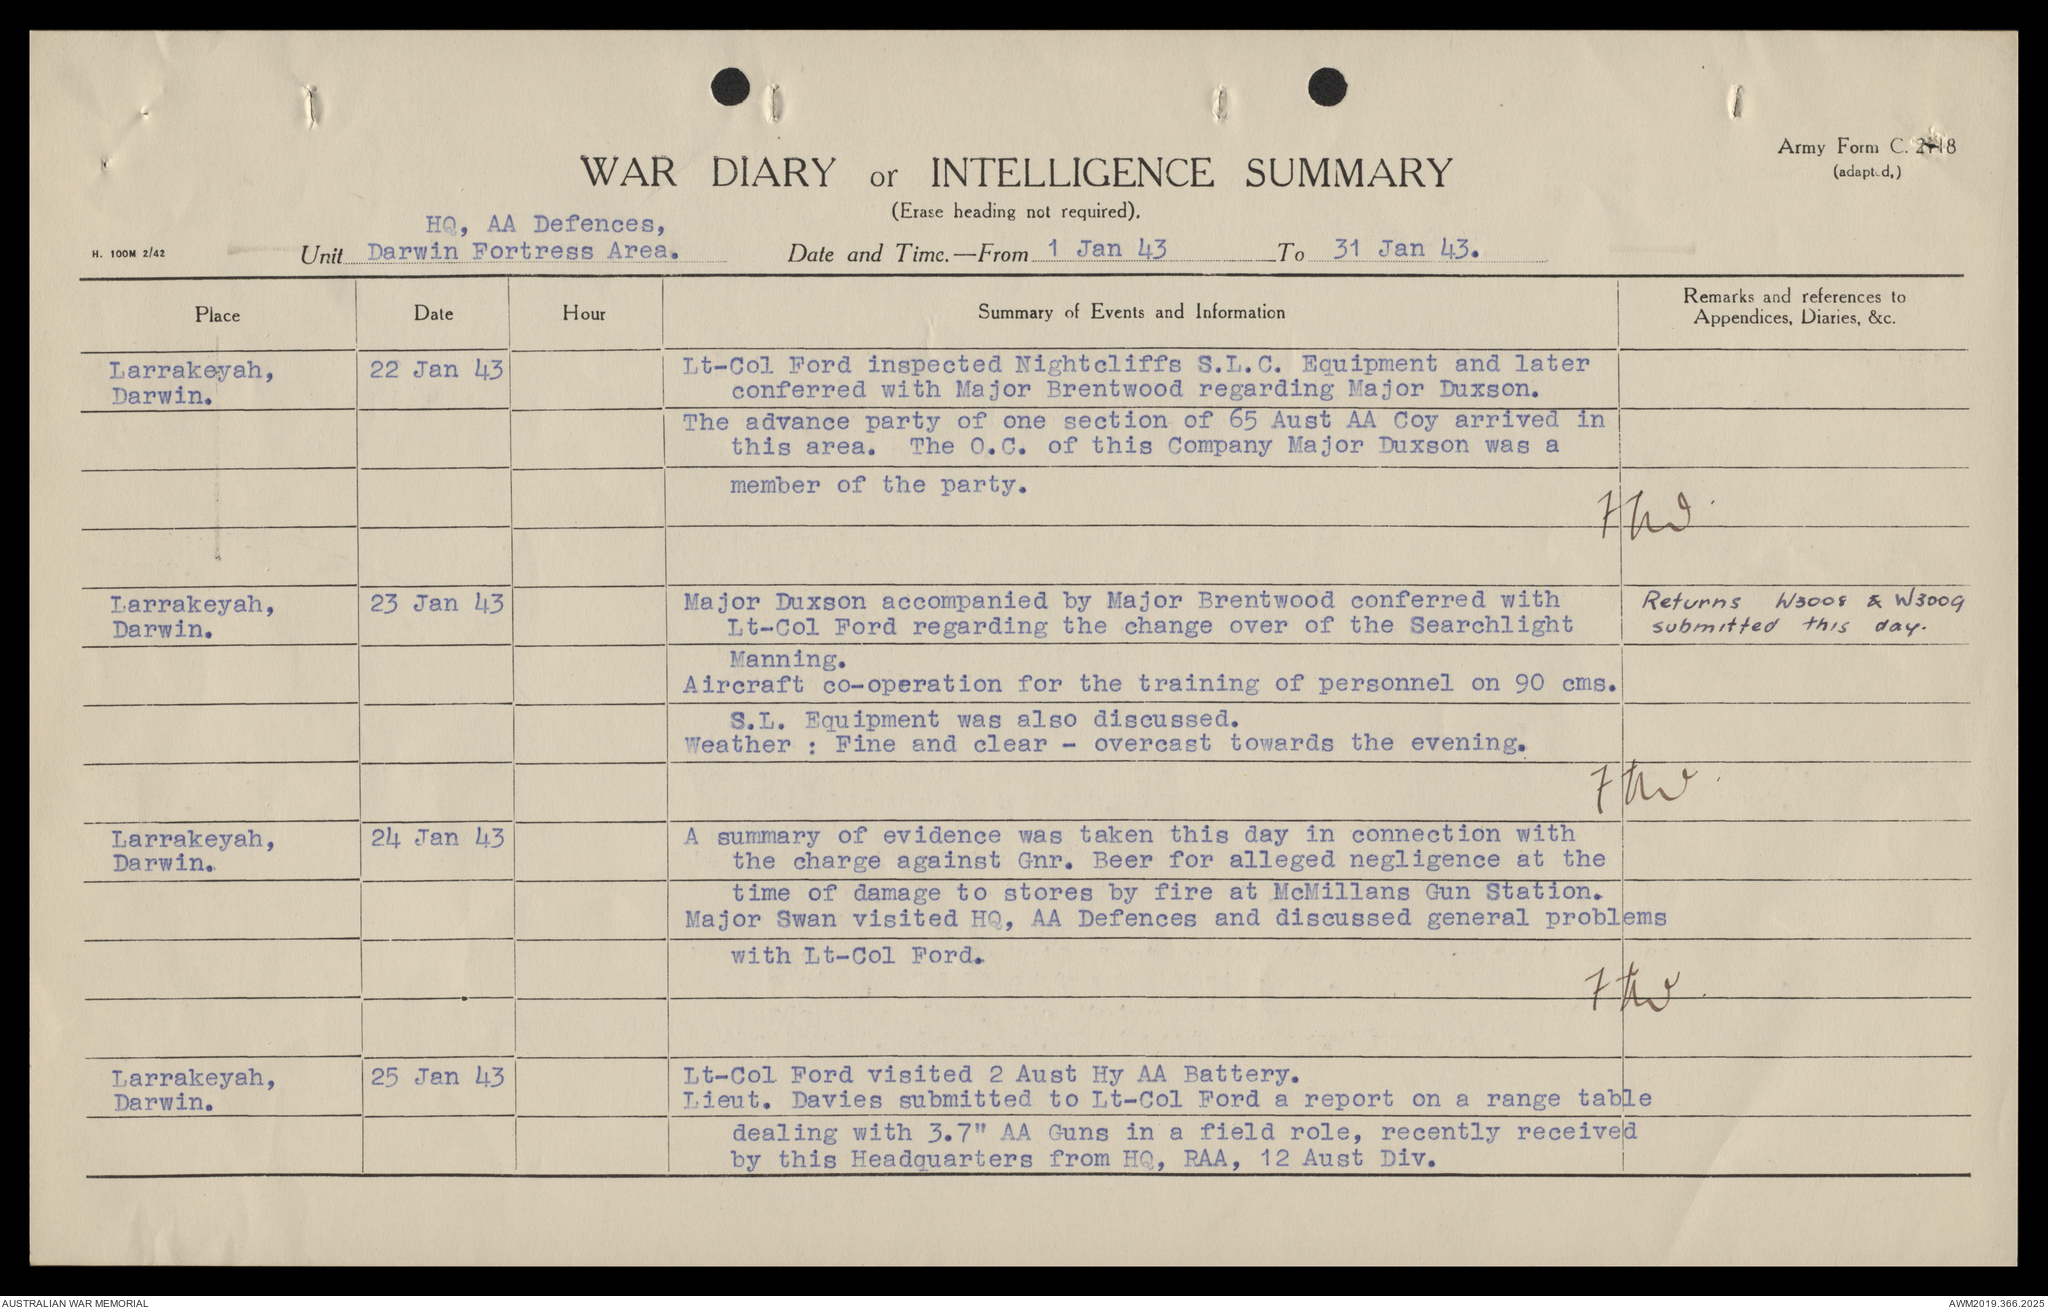 Army Form C. 2118
(adapted,)
WAR DIARY or INTELLIGENCE SUMMARY
(Erase heading not required).
HQ, AA Defences,
H. 100M 2/42
Unit Darwin Fortress Area.
Date and Time.—From 1 Jan 43 To 31 Jan 43.
Place Date Hour Summary of Events and Information Remarks and references to
Appendices, Diaries, &c.
Larrakeyah, 22 Jan 43 Lt-Col Ford inspected Nightcliffs S.L.C. Equipment and later
Darwin. conferred with Major Brentwood regarding Major Duxson.
The advance party of one section of 65 Aust AA Coy arrived in
this area. The O.C. of this Company Major Duxson was a
member of the party.
Larrakeyah, 23 Jan 43 Major Duxson accompanied by Major Brentwood conferred with Returns W3008 & W3009
Darwin. Lt-Col Ford regarding the change over of the Searchlight submitted this day.
Manning.
Aircraft co-operation for the training of personnel on 90 cms.
S.L. Equipment was also discussed.
Weather : Fine and clear - overcast towards the evening.
Larrakeyah, 24 Jan 43 A summary of evidence was taken this day in connection with
Darwin. the charge against Gnr. Beer for alleged negligence at the
time of damage to stores by fire at McMillans Gun Station.
Major Swan visited HQ, AA Defences and discussed general problems
with Lt-Col Ford.
Larrakeyah, 25 Jan 43 Lt-Col Ford visited 2 Aust Hy AA Battery.
Darwin. Lieut. Davies submitted to Lt-Col Ford a report on a range table
dealing with 3.7" AA Guns in a field role, recently received
by this Headquarters from HQ, RAA, 12 Aust Div.
AUSTRALIAN WAR MEMORIAL
AWM2019.366.2025